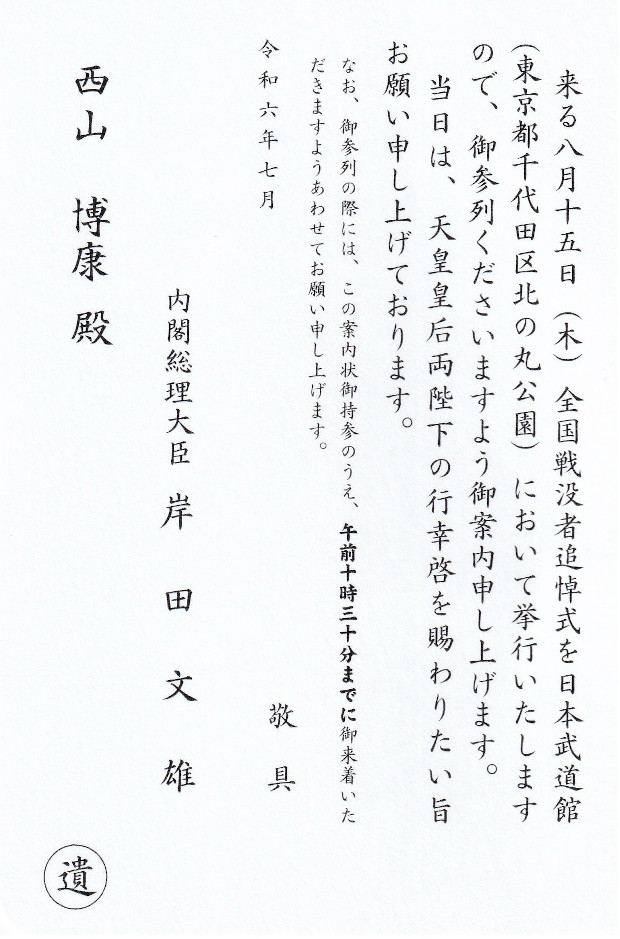 来る八月十五日（木）全国戦没者追悼式を日本武道館
（東京都千代田区北の丸公園）において挙行いたします
ので、御参列くださいますよう御案内申し上げます。
当日は、天皇皇后両陛下の行幸啓を賜わりたい旨
お願い申し上げております。
なお、御参列の際には、この案内状御持参のうえ、午前十時三十分までに御来着いた
だきますようあわせてお願い申し上げます。
敬具
令和六年七月
内閣総理大臣 岸田文雄
西山 博康 殿
遺